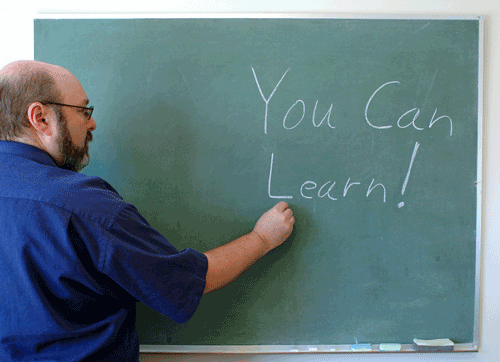 You Can
Learn!